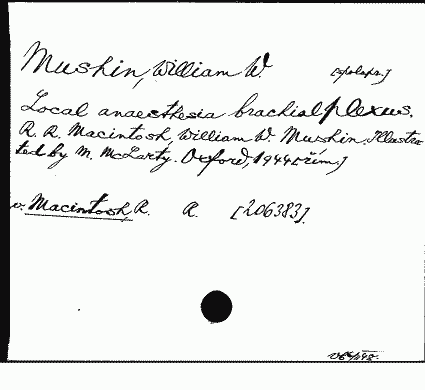 Mushin, William W.
Local anaesthesia brachial plexus.
R. R. Macintosh, William W. Mushin. Illustra
ted by M. McLarty. Oxford, 1944
v. Macintosh, R. R. [206383].